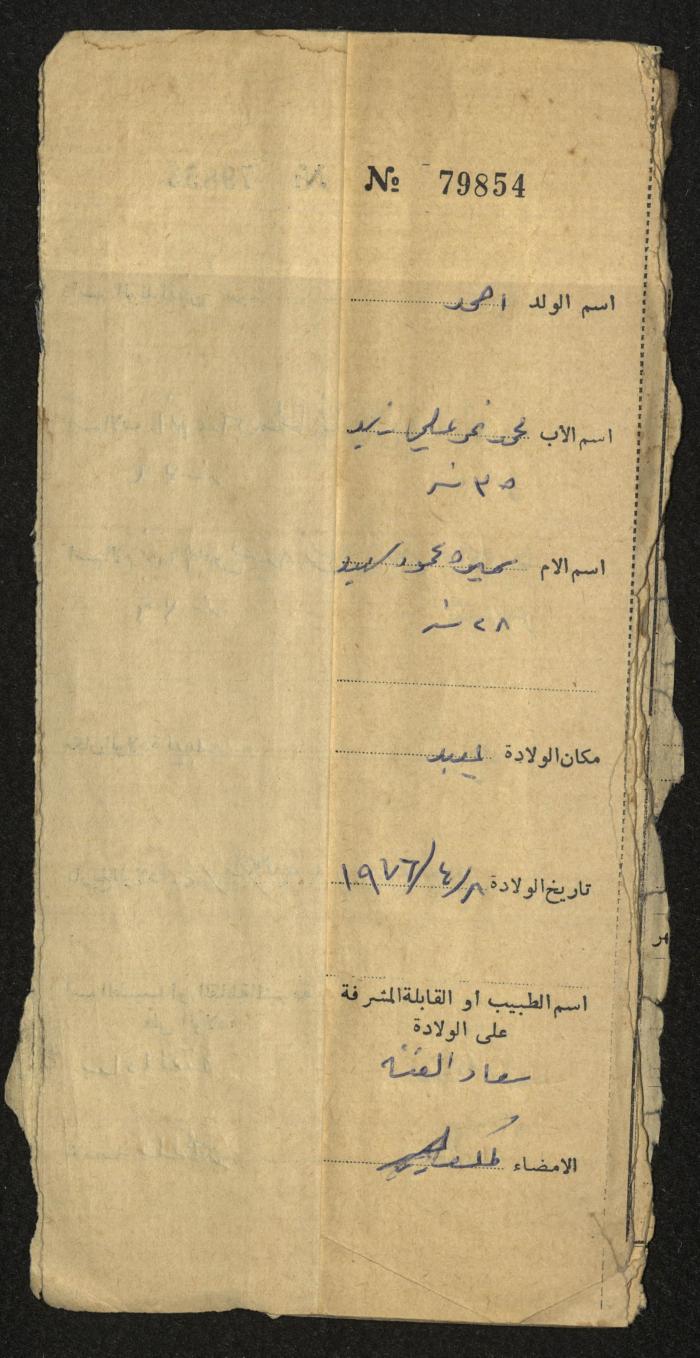 № 79854
اسم الولد احمد
اسم الأب محمد نمر علي زيد
٣٥ سنه
اسم الام سميره محمود سعيد
٢٨ سنه
مكان الولادة يعبد
تاريخ الولادة ١٩٧٦/٤/٨
اسم الطبيب أو القابلة المشرفة
على الولادة
سعاد
الامضاء